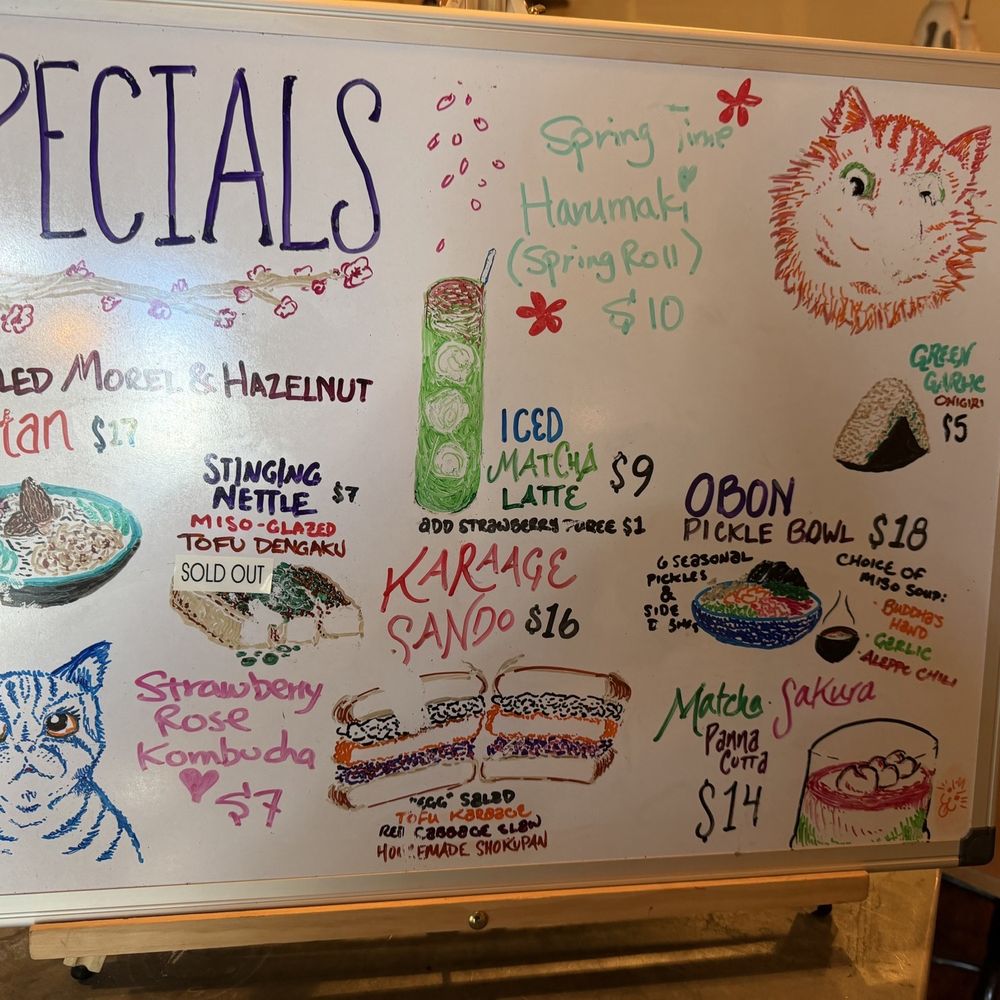 PECIALS
LED MOREL & HAZELNUT
tan $17
STINGING
NETTLE $7
MISO-GLAZED
TOFU DENGAKU
SOLD OUT
Strawberry
Rose
Kombucha
$7
Spring Time
Harumaki
(Spring Roll)
$10
ICED
MATCHA
LATTE $9
ADD STRAWBERRY PUREE $1
KARAAGE
SANDO $16
"EGG" SALAD
TOFU KARAAGE
RED CABBAGE SLAW
HOMEMADE SHOKUPAN
GREEN
GARLIC
ONIGIRI
$5
OBON
PICKLE BOWL $18
6 SEASONAL
PICKLES
&
SIDE
CHOICE OF
MISO SOUP:
· BUDDHA'S
HAND
· GARLIC
· ALEPPO CHILI
Matcha Sakura
Panna
Cotta
$14